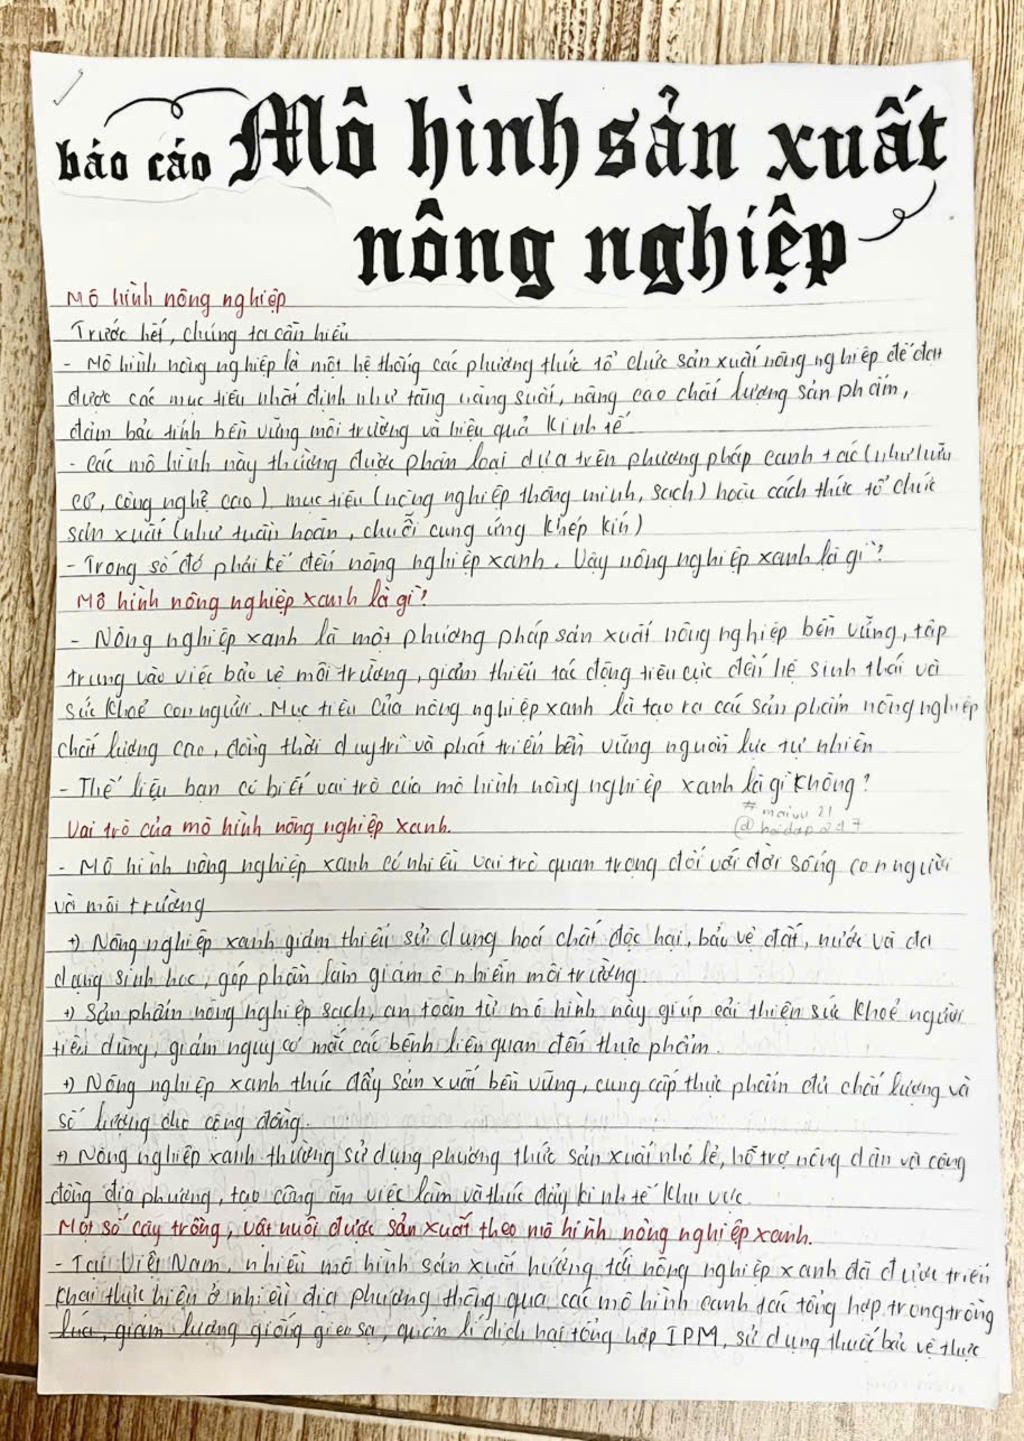 báo cáo Mô hình sản xuất
nông nghiệp
Mô hình nông nghiệp
Trước hết, chúng ta cần hiểu
- Mô hình nông nghiệp là một hệ thống các phương thức tổ chức sản xuất nông nghiệp để đạt
được các mục tiêu nhất định như tăng năng suất, nâng cao chất lượng sản phẩm,
đảm bảo tính bền vững môi trường và hiệu quả kinh tế
- Các mô hình này thường được phân loại dựa trên phương pháp canh tác (như hữu
cơ, công nghệ cao), mục tiêu (nông nghiệp thông minh, sạch) hoặc cách thức tổ chức
sản xuất (như tuần hoàn, chuỗi cung ứng khép kín)
- Trong số đó phải kể đến nông nghiệp xanh. Vậy nông nghiệp xanh là gì?
Mô hình nông nghiệp xanh là gì?
- Nông nghiệp xanh là một phương pháp sản xuất nông nghiệp bền vững, tập
trung vào việc bảo vệ môi trường, giảm thiểu tác động tiêu cực đến hệ sinh thái và
sức khoẻ con người. Mục tiêu của nông nghiệp xanh là tạo ra các sản phẩm nông nghiệp
chất lượng cao, đồng thời duy trì và phát triển bền vững nguồn lực tự nhiên
- Thế liệu bạn có biết vai trò của mô hình nông nghiệp xanh là gì không?
#maivu21
@hoidap247
Vai trò của mô hình nông nghiệp xanh.
- Mô hình nông nghiệp xanh có nhiều vai trò quan trọng đối với đời sống con người
và môi trường
+) Nông nghiệp xanh giảm thiểu sử dụng hoá chất độc hại, bảo vệ đất, nước và đa
dạng sinh học, góp phần làm giảm ô nhiễm môi trường.
+) Sản phẩm nông nghiệp sạch, an toàn từ mô hình này giúp cải thiện sức khoẻ người
tiêu dùng, giảm nguy cơ mắc các bệnh liên quan đến thực phẩm.
+) Nông nghiệp xanh thúc đẩy sản xuất bền vững, cung cấp thực phẩm đủ chất lượng và
số lượng cho cộng đồng.
+) Nông nghiệp xanh thường sử dụng phương thức sản xuất nhỏ lẻ, hỗ trợ nông dân và cộng
đồng địa phương, tạo công ăn việc làm và thúc đẩy kinh tế khu vực.
Một số cây trồng, vật nuôi được sản xuất theo mô hình nông nghiệp xanh.
- Tại Việt Nam, nhiều mô hình sản xuất hướng tới nông nghiệp xanh đã được triển
khai thực hiện ở nhiều địa phương thông qua các mô hình canh tác tổng hợp trong trồng
lúa, giảm lượng giống gieo sạ, quản lí dịch hại tổng hợp IPM, sử dụng thuốc bảo vệ thực